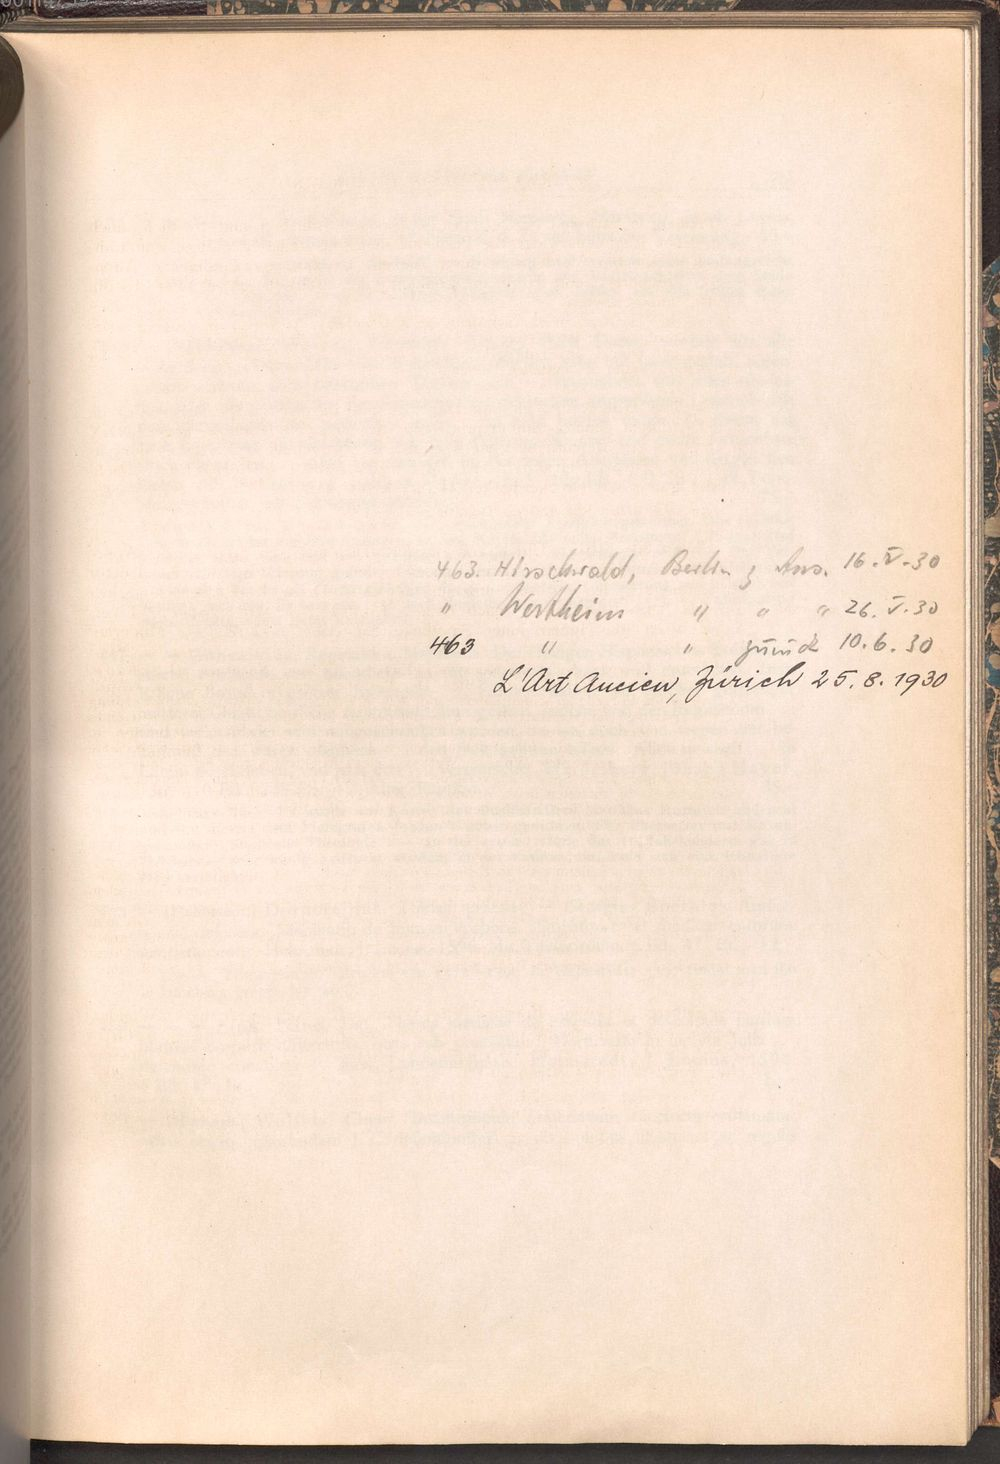 463. Hirschwald, Berlin z. Ans. 16.V.30
" Wertheim " " " 26.V.30
463 " " zurück 10.6.30
L'Art Ancien, Zürich 25.8.1930